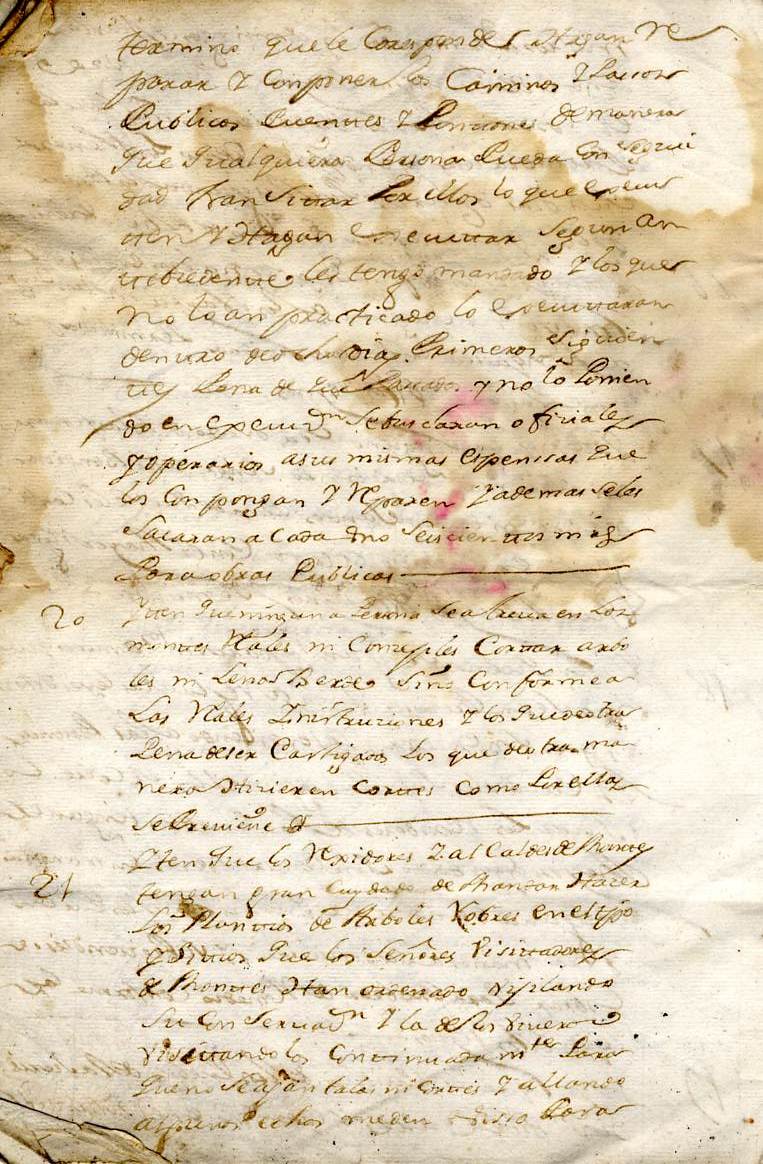 termino que le Coresponde hagan Re
parar y Conponer los Caminos y Passos
Publicos Puenttes y Ponttones de manera
que qualquiera Persona Pueda Con seguri
dad tran Sittar Por ellos lo que execu
tten y hagan executtar segun an
ttecedentte les tengo mandado y los que
no lo an practicado lo executtaran
denttro de ocho dias Primeros Siguien
ttes Pena de y no lo Ponien
do en execuon se buscaran ofiziales
y operarios a sus mismas espensas que
los Conpongan y Reparen y ademas se les
sacaran a Cada uno Seiscienttos mrs
Para obras Publicas
20 Ytten que ninguna Persona Se attreva en los
monttes Reales ni Conzejiles Corttar arbo
les ni Leñas Berdes Sino Conforme a
Las Reales Ynsttruziones y los que de otra
Pena de ser Casttigados los que de otra ma
nera hizieren Corttes Como Por ellas
se Previene
21 Ytten que los Rexidores y alCaldes de Monttes
tengan gran Cuydado de Manzar Hazer
Los Planttios de Arboles Robres en ettpo
y Sittios que los Señores Visittadores
de Monttes Han ordenado Vijilando
Su Conservaon y la de los viveros
Visittandolos Conttinuadamte Para
que no se agan talas ni Corttes y allando
algunos echos Para